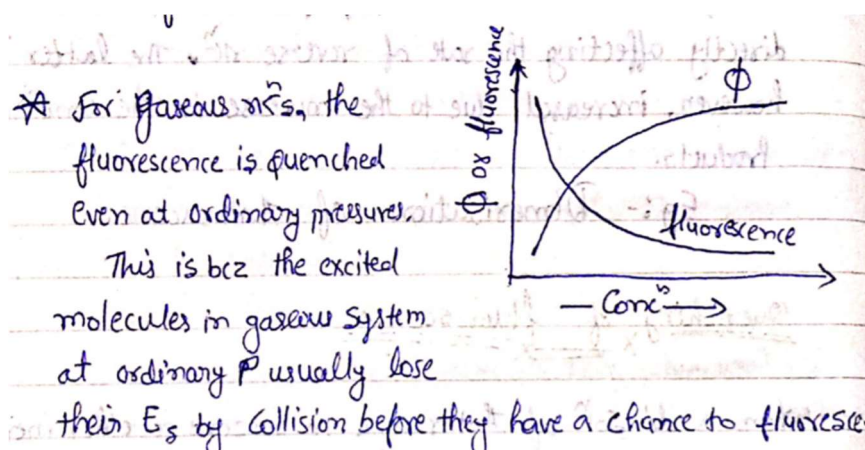 ☆ For gaseous rxⁿs, the
fluorescence is quenched
even at ordinary pressures.
This is bcz the excited
molecules in gaseous system
at ordinary P usually lose
their Es by collision before they have a chance to fluoresce
Φ or fluorescence
Φ
fluorescence
— Concⁿ →